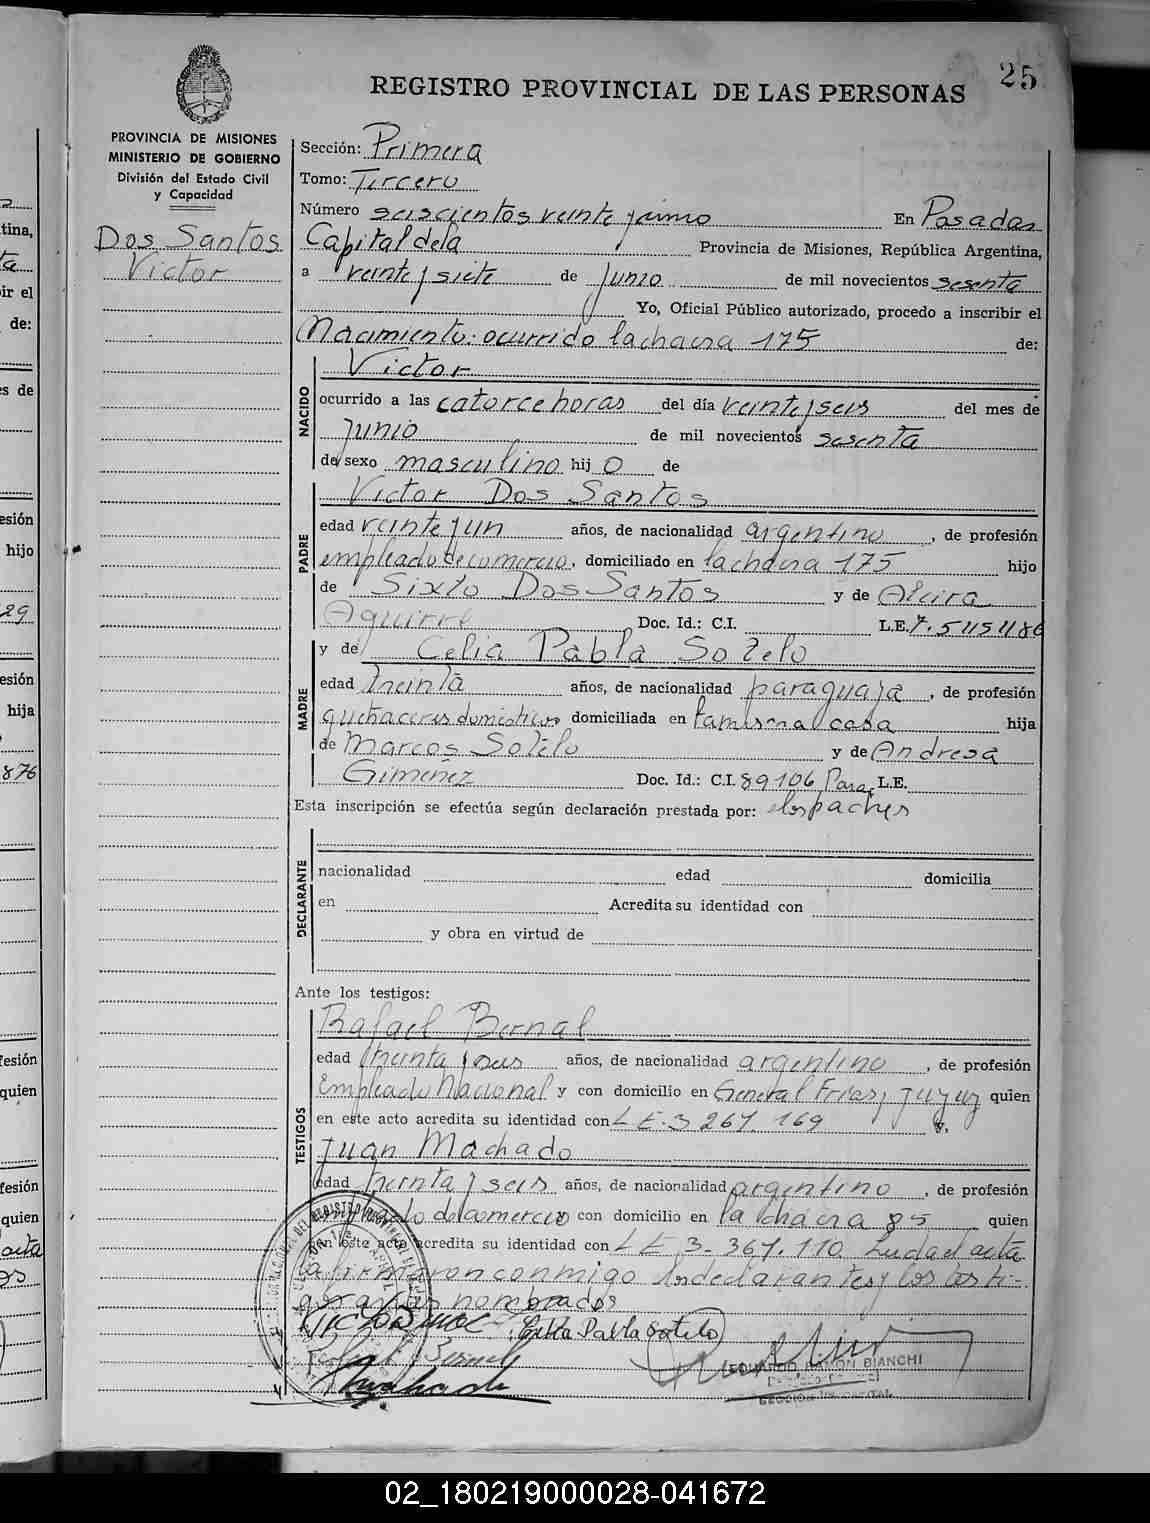 25
REGISTRO PROVINCIAL DE LAS PERSONAS
PROVINCIA DE MISIONES
MINISTERIO DE GOBIERNO
División del Estado Civil
y Capacidad
Dos Santos
Victor
Sección: Primera
Tomo: Tercero
Número seiscientos veinte y uno En Posadas
Capital de la Provincia de Misiones, República Argentina,
a veinte y siete de Junio de mil novecientos sesenta
Yo, Oficial Público autorizado, procedo a inscribir el
Nacimiento: ocurrido la chacra 175 de:
NACIDO
Victor
ocurrido a las catorce horas del día veinte y seis del mes de
Junio de mil novecientos sesenta
de sexo masculino hij o de
PADRE
Victor Dos Santos
edad veinte y un años, de nacionalidad argentino, de profesión
empleado de comercio, domiciliado en la chacra 175 hijo
de Sixto Dos Santos y de Alcira
Aguirre Doc. Id.: C.I. L.E. 7.
MADRE
y de Celia Pabla Sotelo
edad treinta años, de nacionalidad paraguaya, de profesión
quehaceres domésticos domiciliada en la misma casa hija
de Marcos Sotelo y de Andresa
Gimenez Doc. Id.: C.I. 89106 Para L.E.
Esta inscripción se efectúa según declaración prestada por: los padres
DECLARANTE
nacionalidad edad domicilia
en Acredita su identidad con
y obra en virtud de
Ante los testigos:
TESTIGOS
Rafael Bernal
edad treinta y seis años, de nacionalidad argentino, de profesión
Empleado Nacional y con domicilio en General Frias y Jujuy quien
en este acto acredita su identidad con L E. 3 267. 169 y.
Juan Machado
edad treinta y seis años, de nacionalidad argentino, de profesión
empleado de comercio con domicilio en la chacra 85 quien
en este acto acredita su identidad con L E 3- 367. 110 Leida el acta
la firmaron conmigo los declarantes y los testi-
gos antes nombrados
Celia Pabla Sotelo
Rafael Bernal
Machado
EDUARDO RAMON BIANCHI
02_180219000028-041672